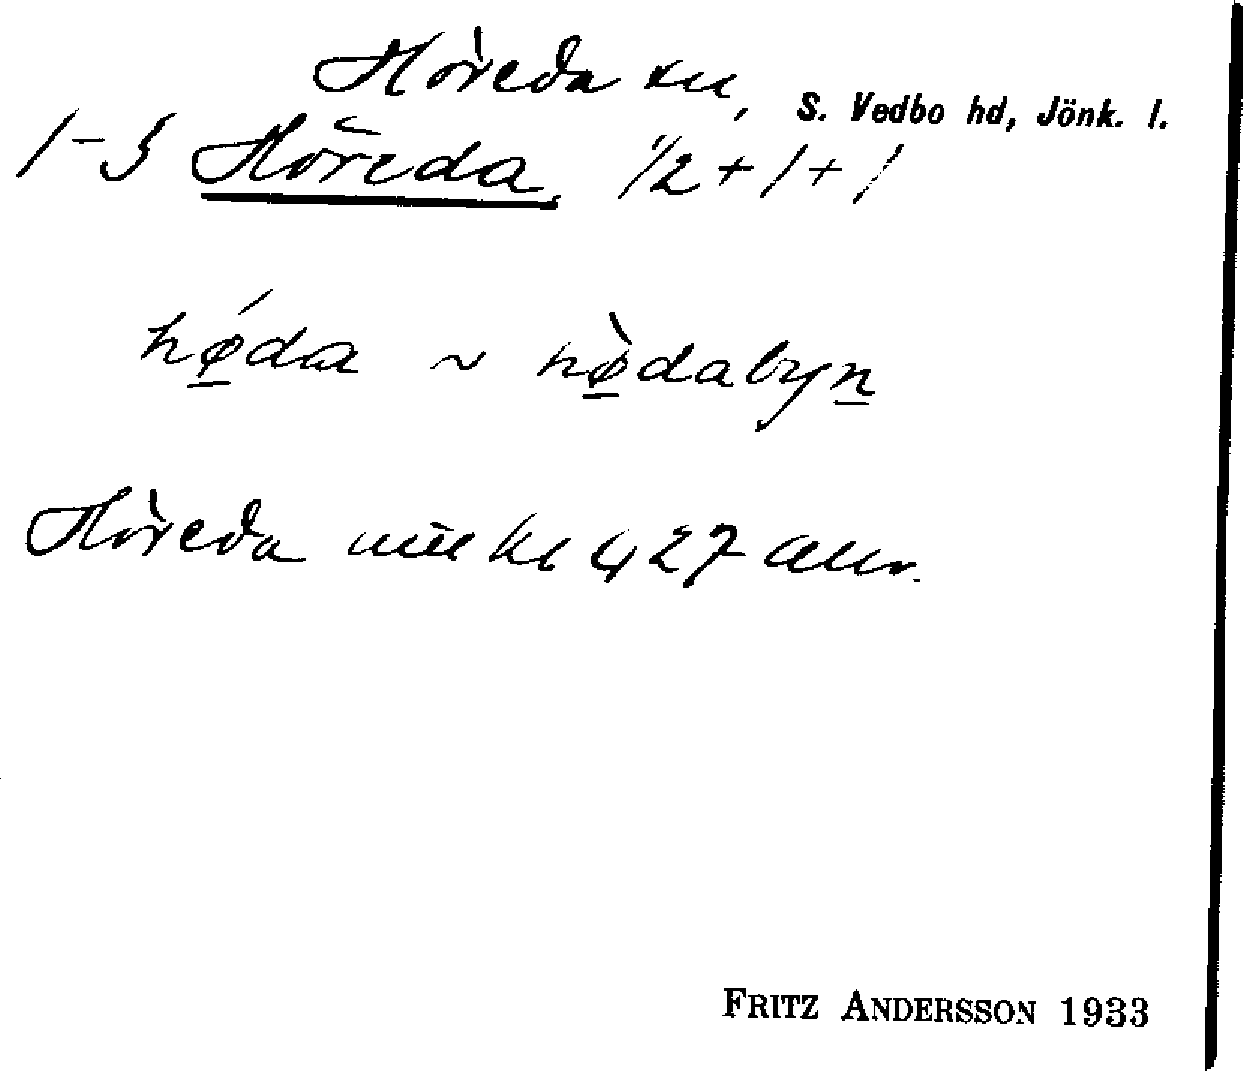 Höreda sn, S. Vedbo hd, Jönk. l.
1-3 Höreda 1/2 + 1 + 1
hǿda ~ hø̀dabyn
Höreda
FRITZ ANDERSSON 1933